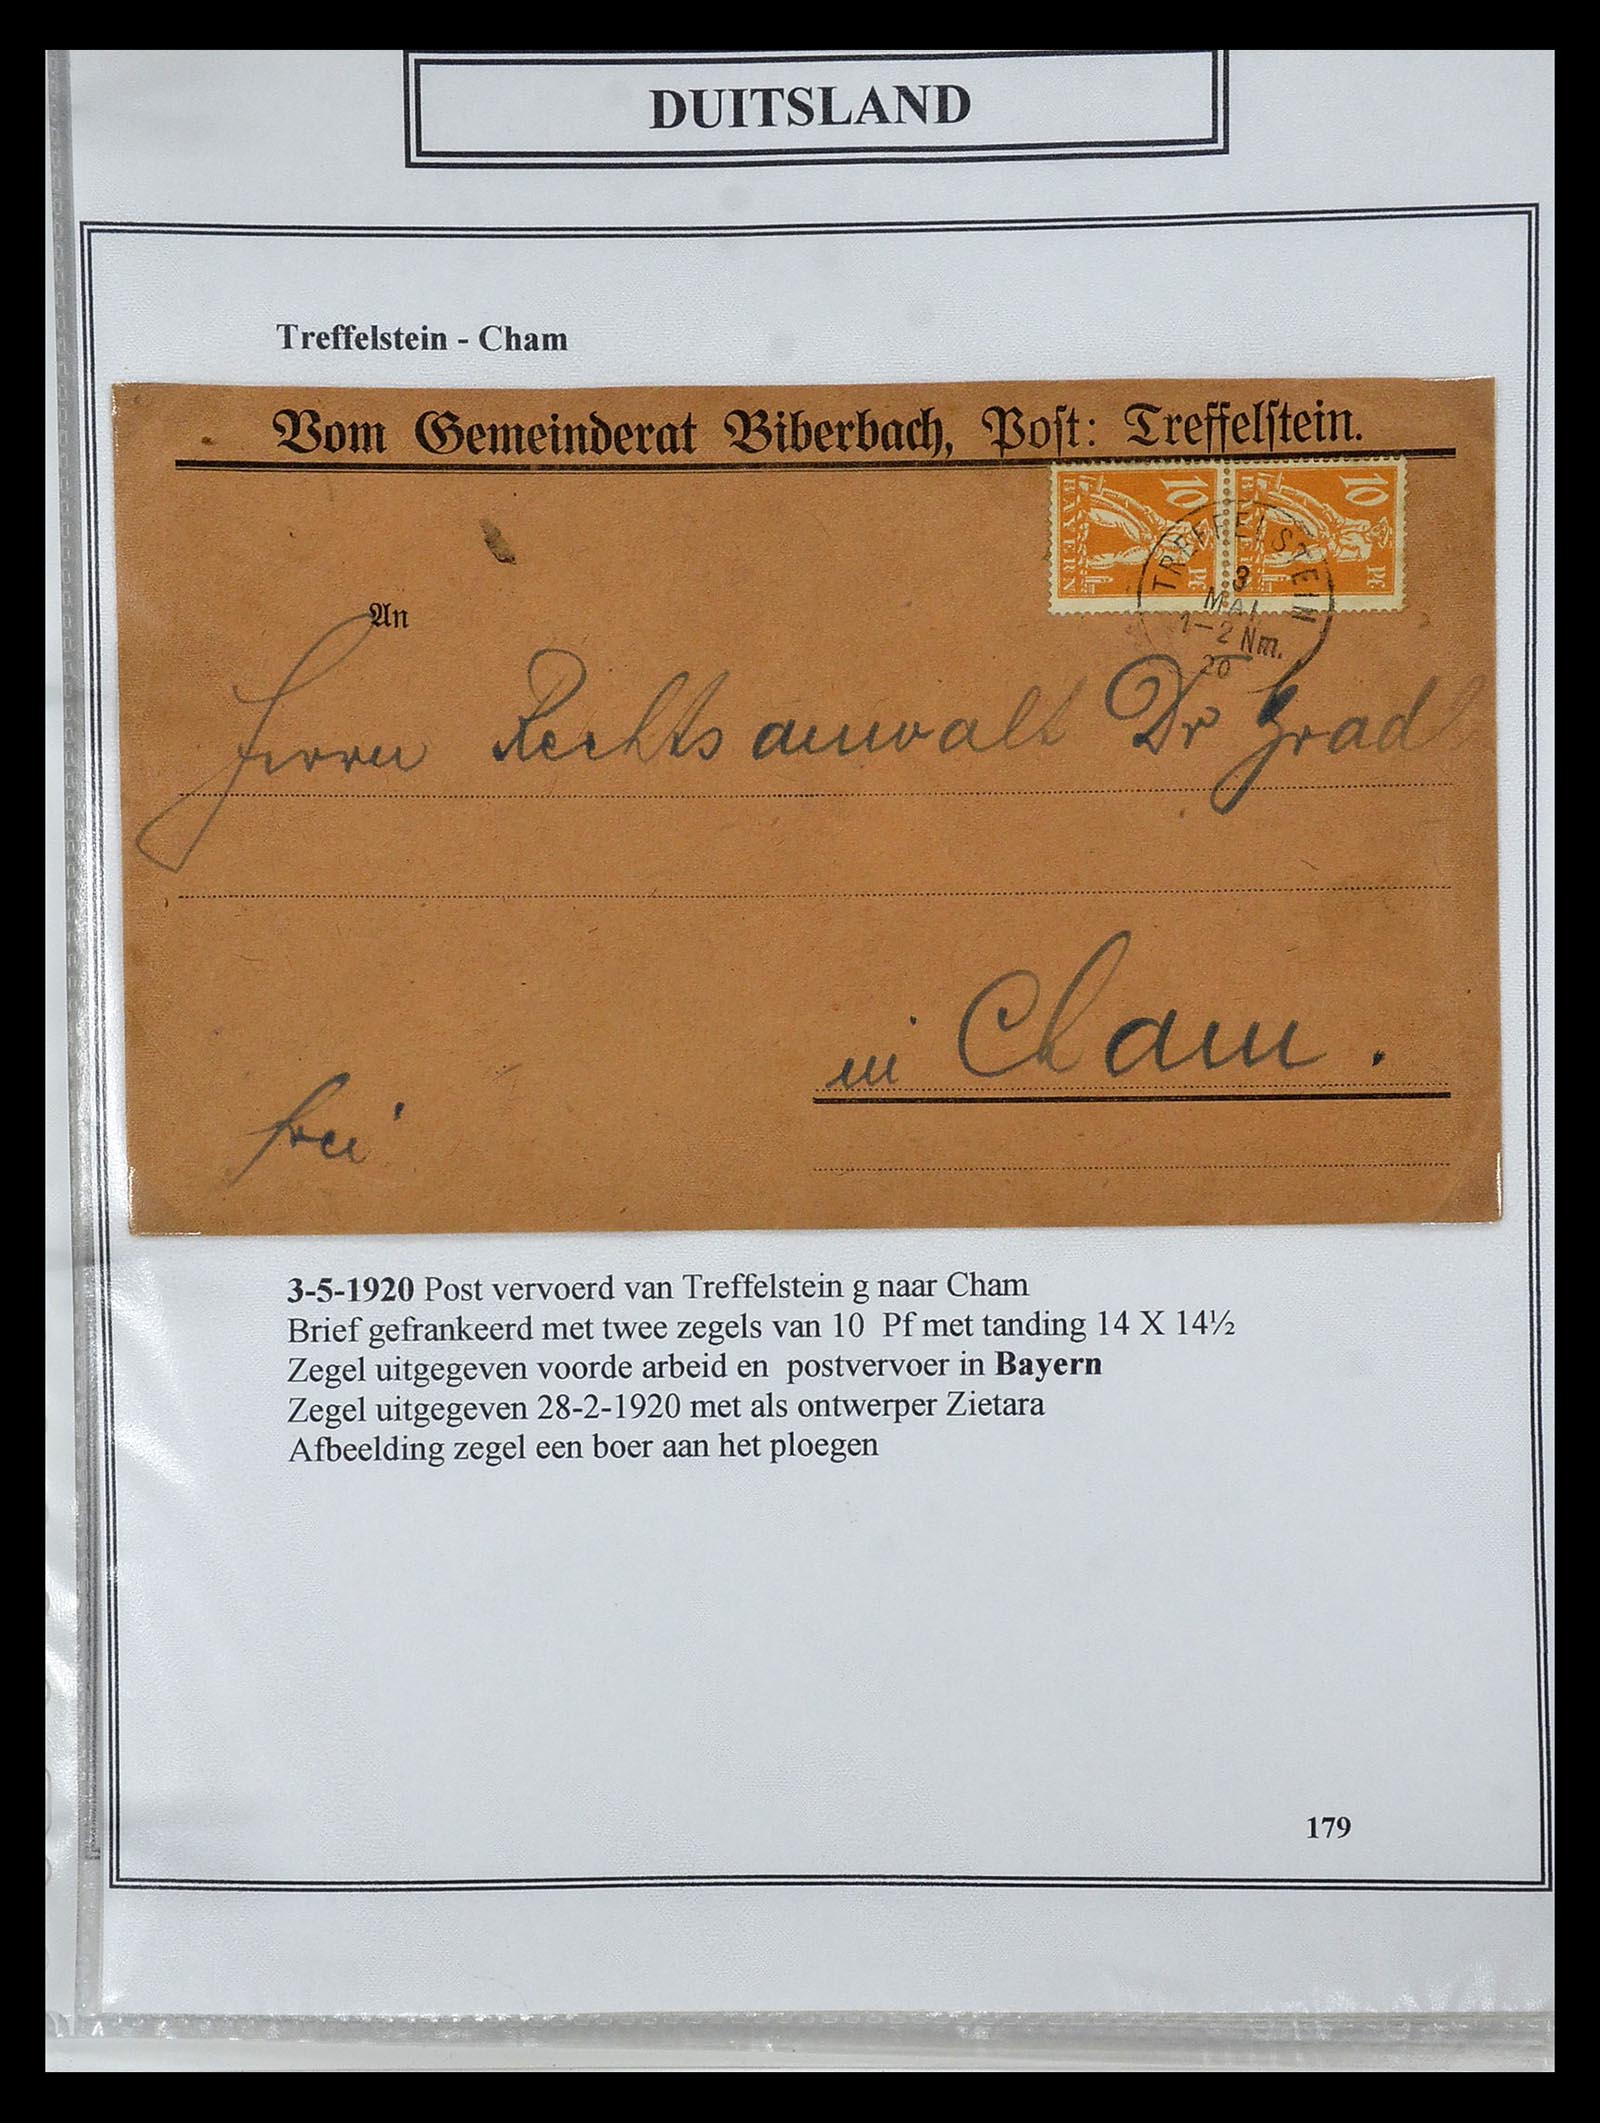 DUITSLAND
Treffelstein - Cham
Vom Gemeinderat Biberbach, Poſt: Treffelſtein.
10 10
BAYERN BAYERN
Pf Pf
TREFFELSTEIN
3
MAI
1-2 Nm.
20
An
Herrn Rechtsanwalt Dr Gradl
in Cham.
frei
3-5-1920 Post vervoerd van Treffelstein g naar Cham
Brief gefrankeerd met twee zegels van 10 Pf met tanding 14 X 14½
Zegel uitgegeven voorde arbeid en postvervoer in Bayern
Zegel uitgegeven 28-2-1920 met als ontwerper Zietara
Afbeelding zegel een boer aan het ploegen
179